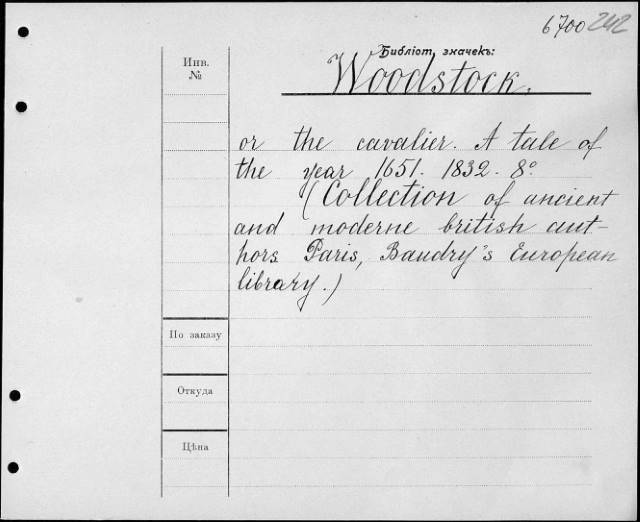 6700 242
Библіот. значекъ:
Инв.
№
Woodstock.
or the cavalier. A tale of
the year 1651. 1832. 8°
(Collection of ancient
and moderne british aut-
hors Paris, Baudry's European
library.)
По заказу
Откуда
Цѣна